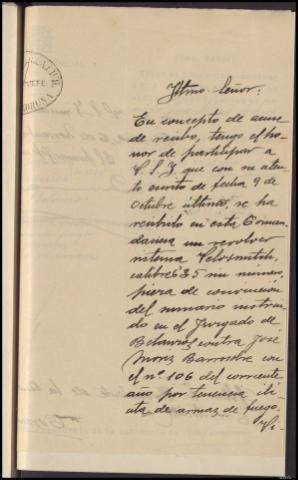 JEFE
CORUÑA
Iltmo. Señor:
En concepto de acuse
de recibo, tengo el ho-
nor de participar a
V.S.I. que con su aten-
to escrito de fecha 9 de
Octubre último, se ha
recibido en esta Coman-
dancia un revolver
sistema Velosmith,
calibre 6'35 sin numero,
pieza de convicción
del sumario instrui-
do en el Juzgado de
Betanzos contra José
Barros con
el nº 106 del corriente
año por tenencia ili-
cita de armas de fuego.